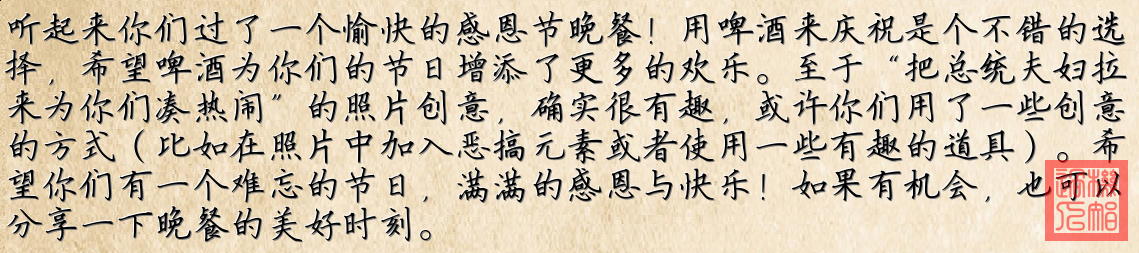 听起来你们过了一个愉快的感恩节晚餐！用啤酒来庆祝是个不错的选
择，希望啤酒为你们的节日增添了更多的欢乐。至于“把总统夫妇拉
来为你们凑热闹”的照片创意，确实很有趣，或许你们用了一些创意
的方式（比如在照片中加入恶搞元素或者使用一些有趣的道具）。希
望你们有一个难忘的节日，满满的感恩与快乐！如果有机会，也可以
分享一下晚餐的美好时刻。